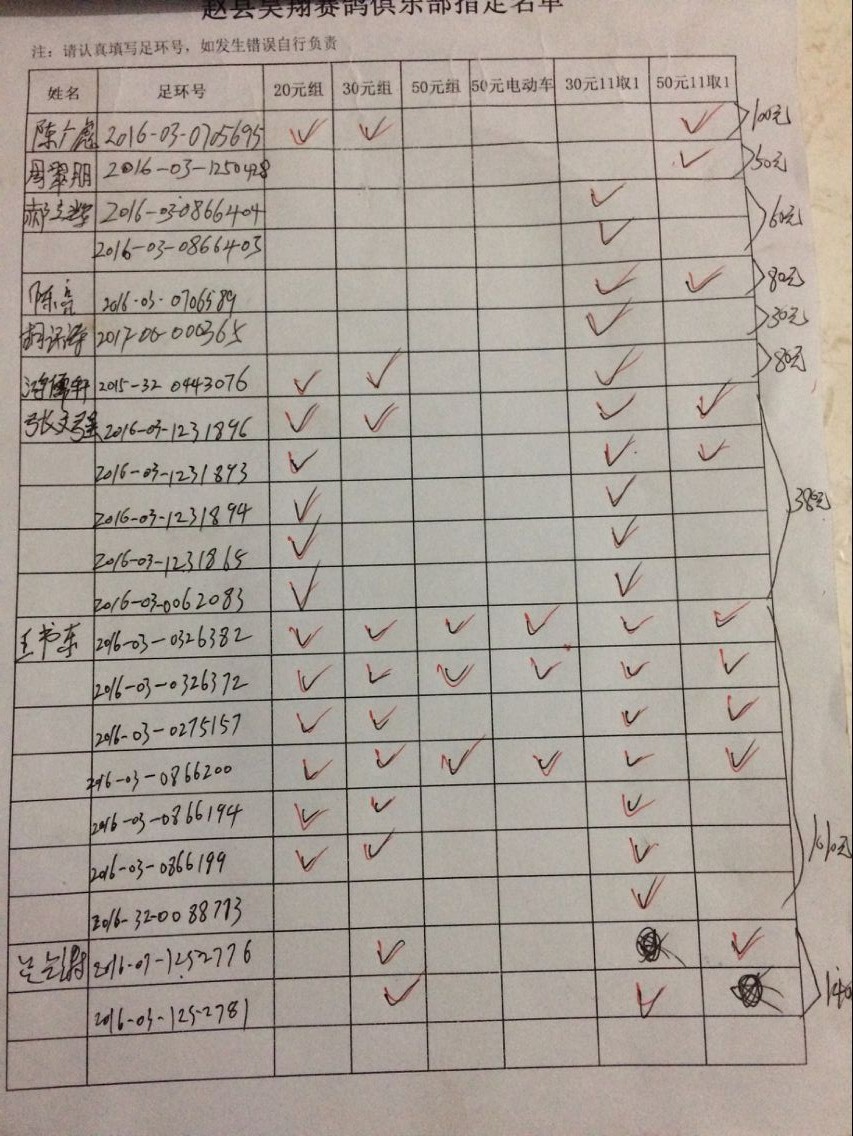 赵县昊翔赛鸽俱乐部指定名单
注：请认真填写足环号，如发生错误自行负责
姓名 足环号 20元组 30元组 50元组 50元电动车 30元11取1 50元11取1
陈广彪 2016-03-0705695 ✓ ✓ ✓ 100元
周翠朋 2016-03-1250428 ✓ 50元
郝 2016-03-0866404 ✓
2016-03-0866403 ✓ 60元
陈亮 2016-03-0706589 ✓ ✓ 80元
2017-00-000365 ✓ 30元
鸿儒轩 2015-32 0443076 ✓ ✓ ✓ 80元
张文强 2016-03-1231896 ✓ ✓ ✓ ✓
2016-03-1231893 ✓ ✓ ✓
2016-03-1231894 ✓ ✓ 380元
2016-03-1231865 ✓ ✓
2016-03-0062083 ✓ ✓
王书东 2016-03-0326382 ✓ ✓ ✓ ✓ ✓ ✓
2016-03-0326372 ✓ ✓ ✓ ✓ ✓ ✓
2016-03-0275157 ✓ ✓ ✓ ✓
2016-03-0866200 ✓ ✓ ✓ ✓ ✓ ✓
2016-03-0866194 ✓ ✓ ✓
2016-03-0866199 ✓ ✓ ✓ 1010元
2016-32-0088773 ✓
2016-07-1252776 ✓ ✓
2016-03-1252781 ✓ ✓ 140